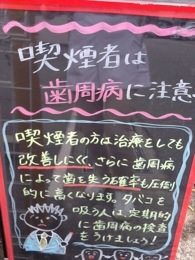 喫煙者は
歯周病に注意
喫煙者の方は治療をしても
改善しにくく、さらに歯周病
によって歯を失う確率も圧倒
的に高くなります。タバコを
吸う人は、定期的
に歯周病の検査
をうけましょう!